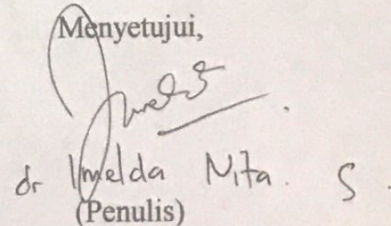 Menyetujui,
dr Imelda Nita. S.
(Penulis)